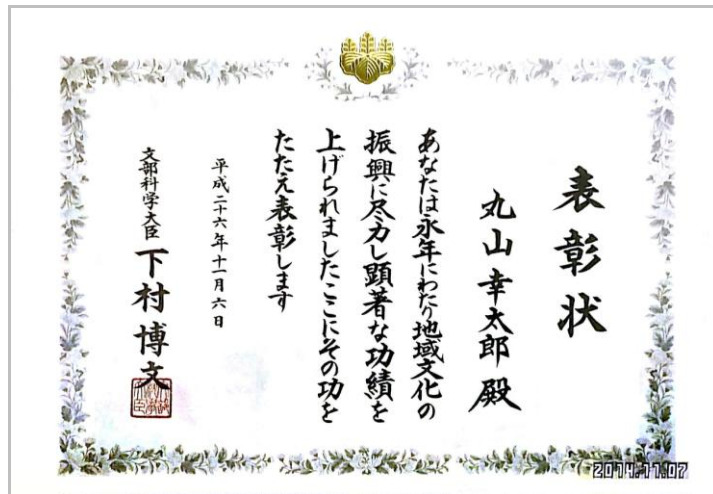 表彰状
丸山幸太郎殿
あなたは永年にわたり地域文化の
振興に尽力し顕著な功績を
上げられましたここにその功を
たたえ表彰します
平成二十六年十一月六日
文部科学大臣 下村博文
2014.11.07